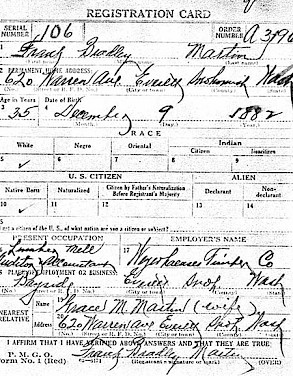 REGISTRATION CARD
SERIAL NUMBER 106 ORDER NUMBER A 3796
1 Frank Bradley Martin
2 PERMANENT HOME ADDRESS:
620 Warren Ave Everett Snohomish Wash
Age in Years Date of Birth
35 December 9 1882
Month. Day.
RACE
White Negro Oriental Indian
Citizen
5 6 7 8 9
✓
U. S. CITIZEN ALIEN
Native Born Naturalized Citizen by Father's Naturalization Before Registrant's Majority Declarant Non-declarant
10 11 12 13 14
✓
PRESENT OCCUPATION EMPLOYER'S NAME
17 Weyerhaeuser Timber Co
Accountant
PLACE OF EMPLOYMENT OR BUSINESS:
Bayside Everett Snoh Wash
NEAREST RELATIVE Name Grace M. Martin (wife)
Address 620 Warren Ave Everett Snoh Wash
I AFFIRM THAT I HAVE VERIFIED ABOVE ANSWERS AND THAT THEY ARE TRUE
P. M. G. O.
Form No. 1 (Red) Frank Bradley Martin